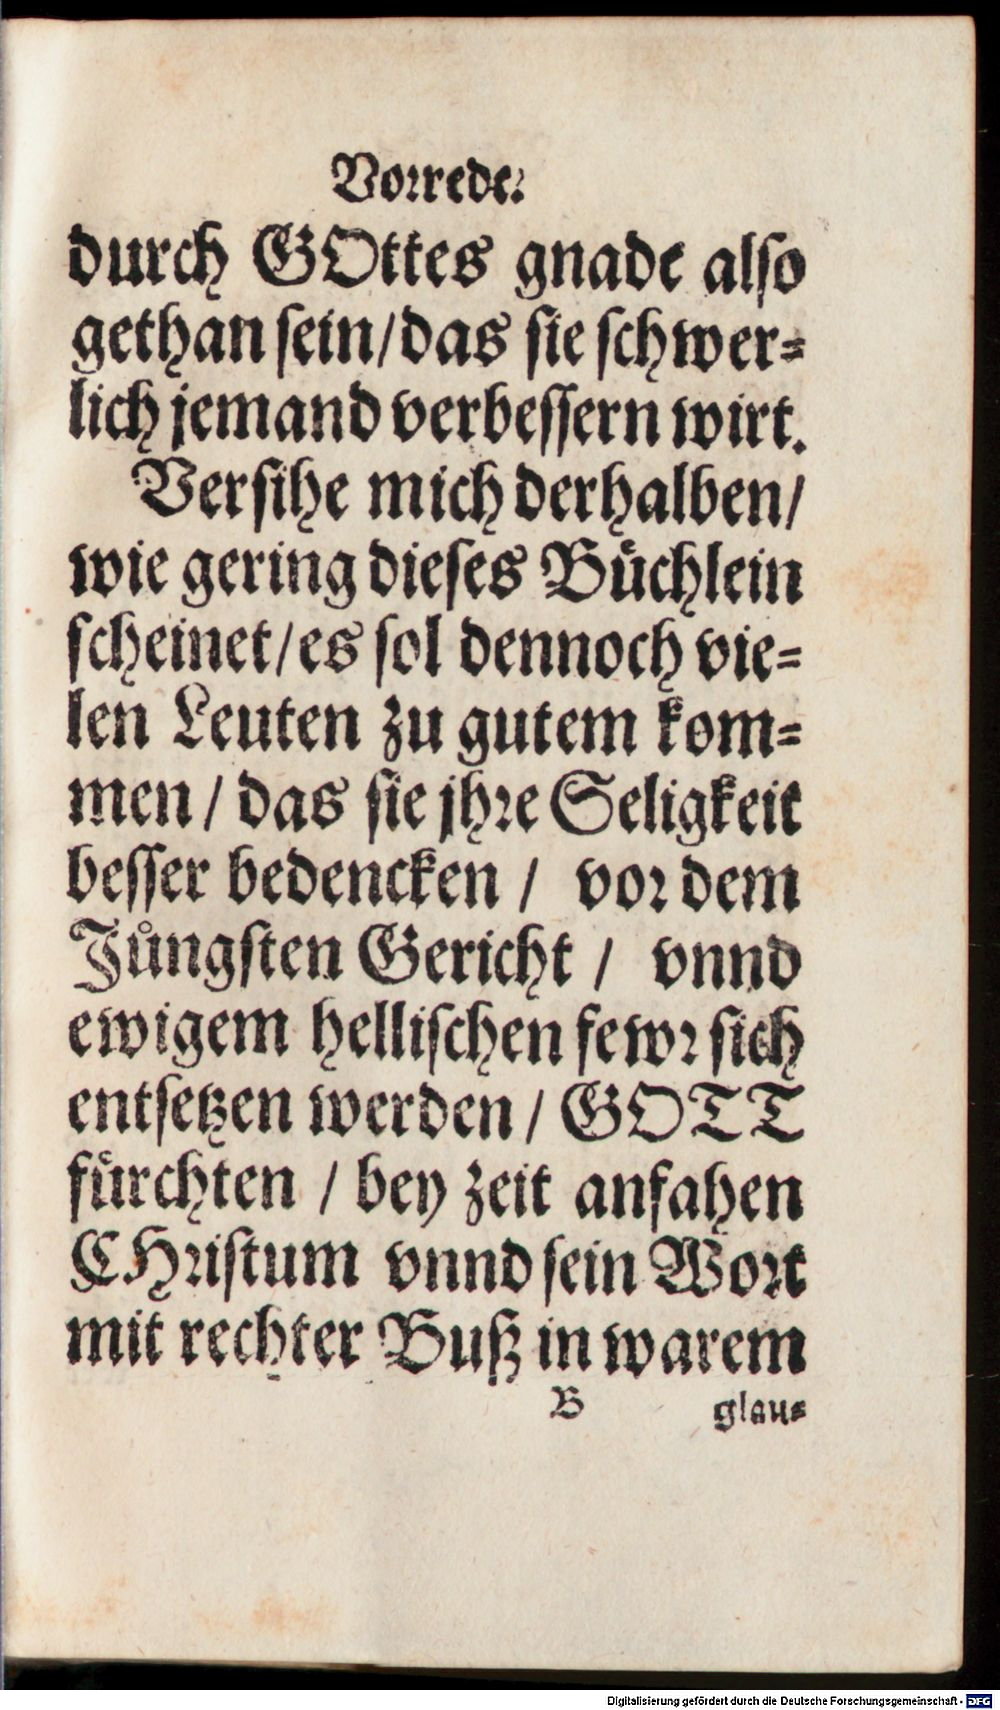 Vorrede.
durch GOttes gnade also
gethan sein/das sie schwer=
lich jemand verbessern wirt.
Versihe mich derhalben/
wie gering dieses Buͤchlein
scheinet/es sol dennoch vie=
len Leuten zu gutem kom=
men / das sie jhre Seligkeit
besser bedencken / vor dem
Juͤngsten Gericht / vnnd
ewigem hellischen fewr sich
entsetzen werden / GOTT
fuͤrchten / bey zeit anfahen
CHristum vnnd sein Wort
mit rechter Buß in warem
B glau=
Digitalisierung gefördert durch die Deutsche Forschungsgemeinschaft - DFG